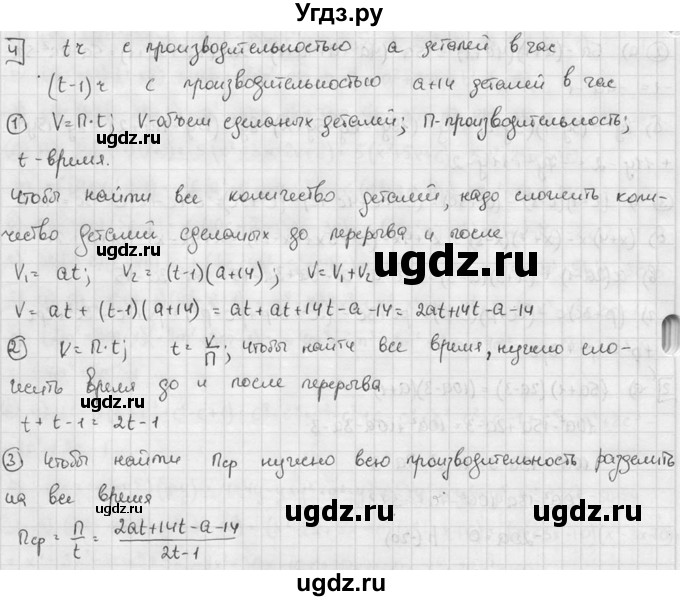 Угдз.ру
4 t ч с производительностью a деталей в час
(t-1) ч с производительностью a+14 деталей в час
① V=П·t; V-объем сделаных деталей; П-производительность;
t-время.
Чтобы найти все количество деталей, надо сложить коли-
чество деталей сделаных до перерыва и после
V₁= at; V₂= (t-1)(a+14); V=V₁+V₂
V= at + (t-1)(a+14) = at+at+14t-a-14= 2at+14t-a-14
② V=П·t; t= V/П; Чтобы найти все время, нужно сло-
жить время до и после перерыва
t+t-1= 2t-1
③ Чтобы найти Пср нужно всю производительность разделить
на все время
Пср = П/t = (2at+14t-a-14)/(2t-1)
ugdz.ru
ugdz.ru
ugdz.ru
ugdz.ru
ugdz.ru
ugdz.ru
ugdz.ru
ugdz.ru